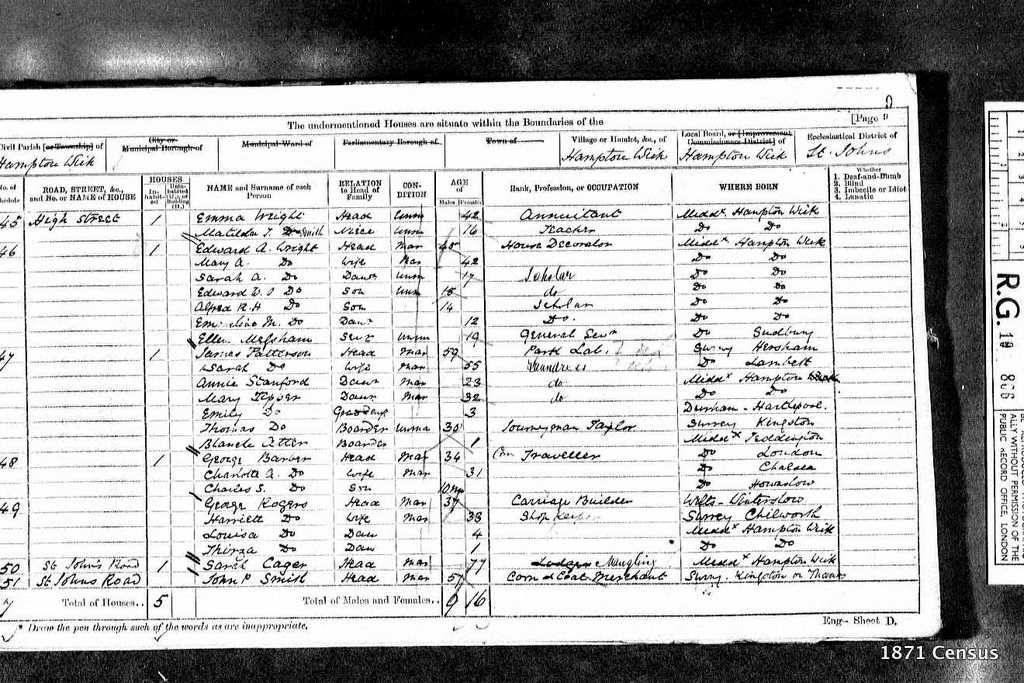 9
The undermentioned Houses are situate within the Boundaries of the
[Page 9
Civil Parish [or Township] of
City or Municipal Borough of
Municipal Ward of
Parliamentary Borough of
Town of
Village or Hamlet, &c., of
Local Board, or [Improvement Commissioners District] of
Ecclesiastical District of
Hampton Wick
Hampton Wick
Hampton Wick
St. Johns
No. of Schedule
ROAD, STREET, &c., and No. or NAME of HOUSE
HOUSES
Inhabited
NAME and Surname of each Person
RELATION to Head of Family
CONDITION
AGE of
Males Females
Rank, Profession, or OCCUPATION
WHERE BORN
Whether
1. Deaf-and-Dumb
2. Blind
3. Imbecile or Idiot
4. Lunatic
45 High Street 1 Emma Wright Head Unm 42 Annuitant Middx Hampton Wick
Matilda J. Smith Niece Unm 16 Teacher Do Do
46 1 Edward A. Wright Head Mar 45 House Decorator Middx Hampton Wick
Mary A. Do Wife Mar 42 Do Do
Sarah A. Do Daur Unm 17 Scholar Do Do
Edward W. J Do Son Unm 15 do Do Do
Alfred R. H Do Son 14 Scholar Do Do
M. Do Daur 12 Do. Do Do
Ellen Servt Unm 19 General Servt Do Sudbury
47 1 James Patterson Head Mar 59 Park Lab. Surrey Hersham
Sarah Do Wife Mar 55 Laundress Do Lambeth
Annie Stanford Daur Mar 23 do Middx Hampton Wick
Mary Daur Mar 32 do Do Do
Emily Do 3 Durham - Hartlepool.
Thomas Do Boarder Unma 30 Journeyman Taylor Surrey Kingston
Blanche Boarder 1 Middx Teddington
48 1 George Barber Head Mar 34 Traveller Do London
Charlotte A. Do Wife Mar 31 Do Chelsea
Charles S. Do Son 10 mo Do Hounslow
49 George Rogers Head Mar 37 Carriage Builder Wilts - Winterslow
Harriett Do Wife Mar 38 Shop Keeper Surrey Chilworth
Louisa Do Daur 4 Middx Hampton Wick
Thirza Do Daur 1 Do Do
50 St Johns Road 1 Sarah Cager Head Mar 77 Mangling Middx Hampton Wick
51 St Johns Road 1 John P Smith Head Mar 57 Corn & Coal Merchant Surry. Kingston on Thams
7 Total of Houses.. 5 Total of Males and Females.. 9 16
* Draw the pen through such of the words as are inappropriate.
Eng— Sheet D.
R.G. 10 866
ALLY WITHOUT PERMISSION OF THE
PUBLIC RECORD OFFICE, LONDON
1871 Census